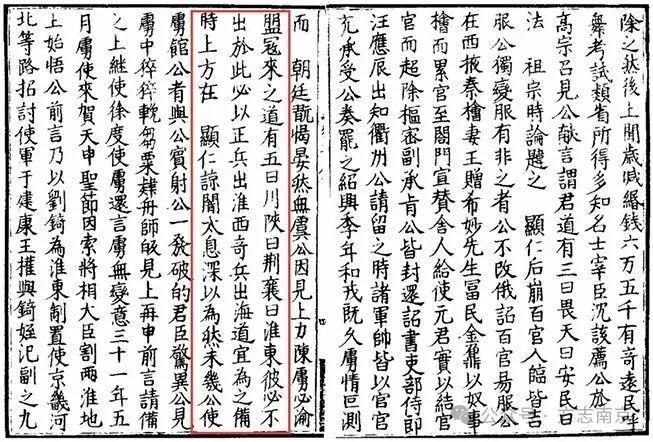 除之然後上聞歲減緡錢六万五千有奇遠民
舞考試類省所得多知名士宰臣沈該薦公於
高宗召見公献言謂君道有三曰畏天曰安民曰
法 祖宗時論韙之 顯仁后崩百官入臨皆吉
服公獨變服有非之者公不改俄詔百官易服公
在西掖秦檜妻王贈希妙先生富民金鼐以奴事
檜而累官至閤門宣賛舍人給使元君實以結宦
官而超除樞密副承旨公皆封還詔書吏部侍郎
汪應辰出知衢州公請留之時諸軍帥皆以宦官
充承受公奏罷之紹興季年和戎既久虜情叵測
而 朝廷翫愒晏然無虞公因見上力陳虜必渝
盟寇來之道有五曰川陝曰荆襄曰淮東彼必不
出於此必以正兵出淮西奇兵出海道宜為之備
時上方在 顯仁諒闇太息深以為然未幾公使
虜館公者與公賓射公一發破的君臣驚異公見
虜中輓芻粟肄舟師皈見上再申前言請備
之上継使徐度使虜還言虜無變意三十一年五
月虜使來賀天申聖節因索將相大臣割兩淮地
上始悟公前言乃以劉錡為淮東制置使京畿河
北等路招討使軍于建康王權與錡姪汜副之九
公众号·方志南京